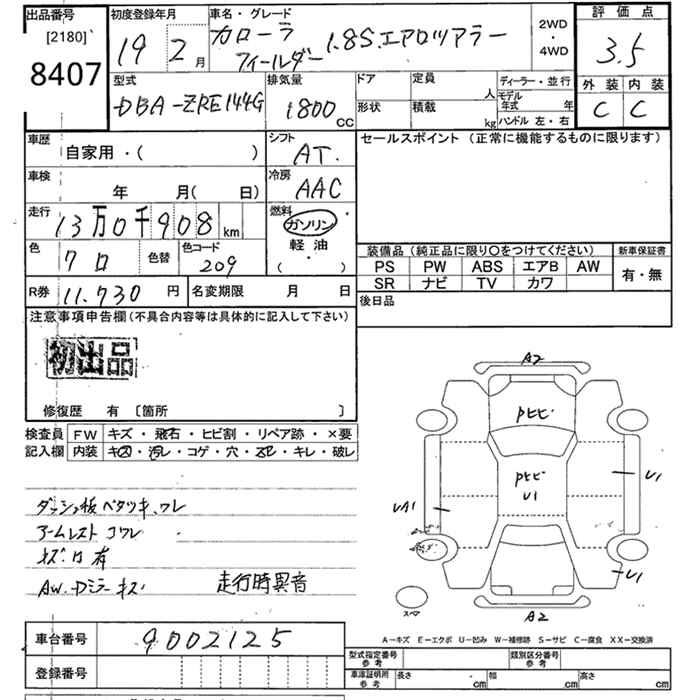 出品番号
[2180]
8407
初度登録年月
19 2月
車名・グレード
カローラ
フィールダー 1.8S.エアロツアラー
2WD
・
4WD
評価点
3.5
外装 内装
C C
型式
DBA-ZRE144G
排気量
1800 CC
ドア
定員 人
形状
積載 kg
ディーラー・並行
モデル年式 年
ハンドル 左・右
車歴
自家用・( )
シフト
AT.
車検
年 月( 日)
冷房
AAC
走行
13万0千908 km
燃料
ガソリン
軽油
( ・ )
色
クロ
色替
色コード
209
R券 11.730 円
名変期限 月 日
セールスポイント (正常に機能するものに限ります)
装備品(純正品に限り○をつけてください)
新車保証書
PS PW ABS エアB AW
SR ナビ TV カワ
有・無
後日品
注意事項申告欄(不具合内容等は具体的に記入して下さい)
初出品
修復歴 有 [箇所 ]
検査員 FW キズ・飛石・ヒビ割・リペア跡・×要
記入欄 内装 キズ・汚レ・コゲ・穴・・キレ・破レ
ダッシュ板ベタツキ、ワレ
アームレスト コワレ
キズ・凹 有
AW.Dミラーキズ 走行時異音
A2
トビ
トビ
U1
UA1
U1
U1
スペア
A2
A−キズ E−エクボ U−凹み W−補修跡 S−サビ C−腐食 XX−交換済
車台番号 9002125
登録番号
型式指定番号 参考
類別区分番号 参考
車庫証明所 参考
長さ cm
幅 cm
高さ cm